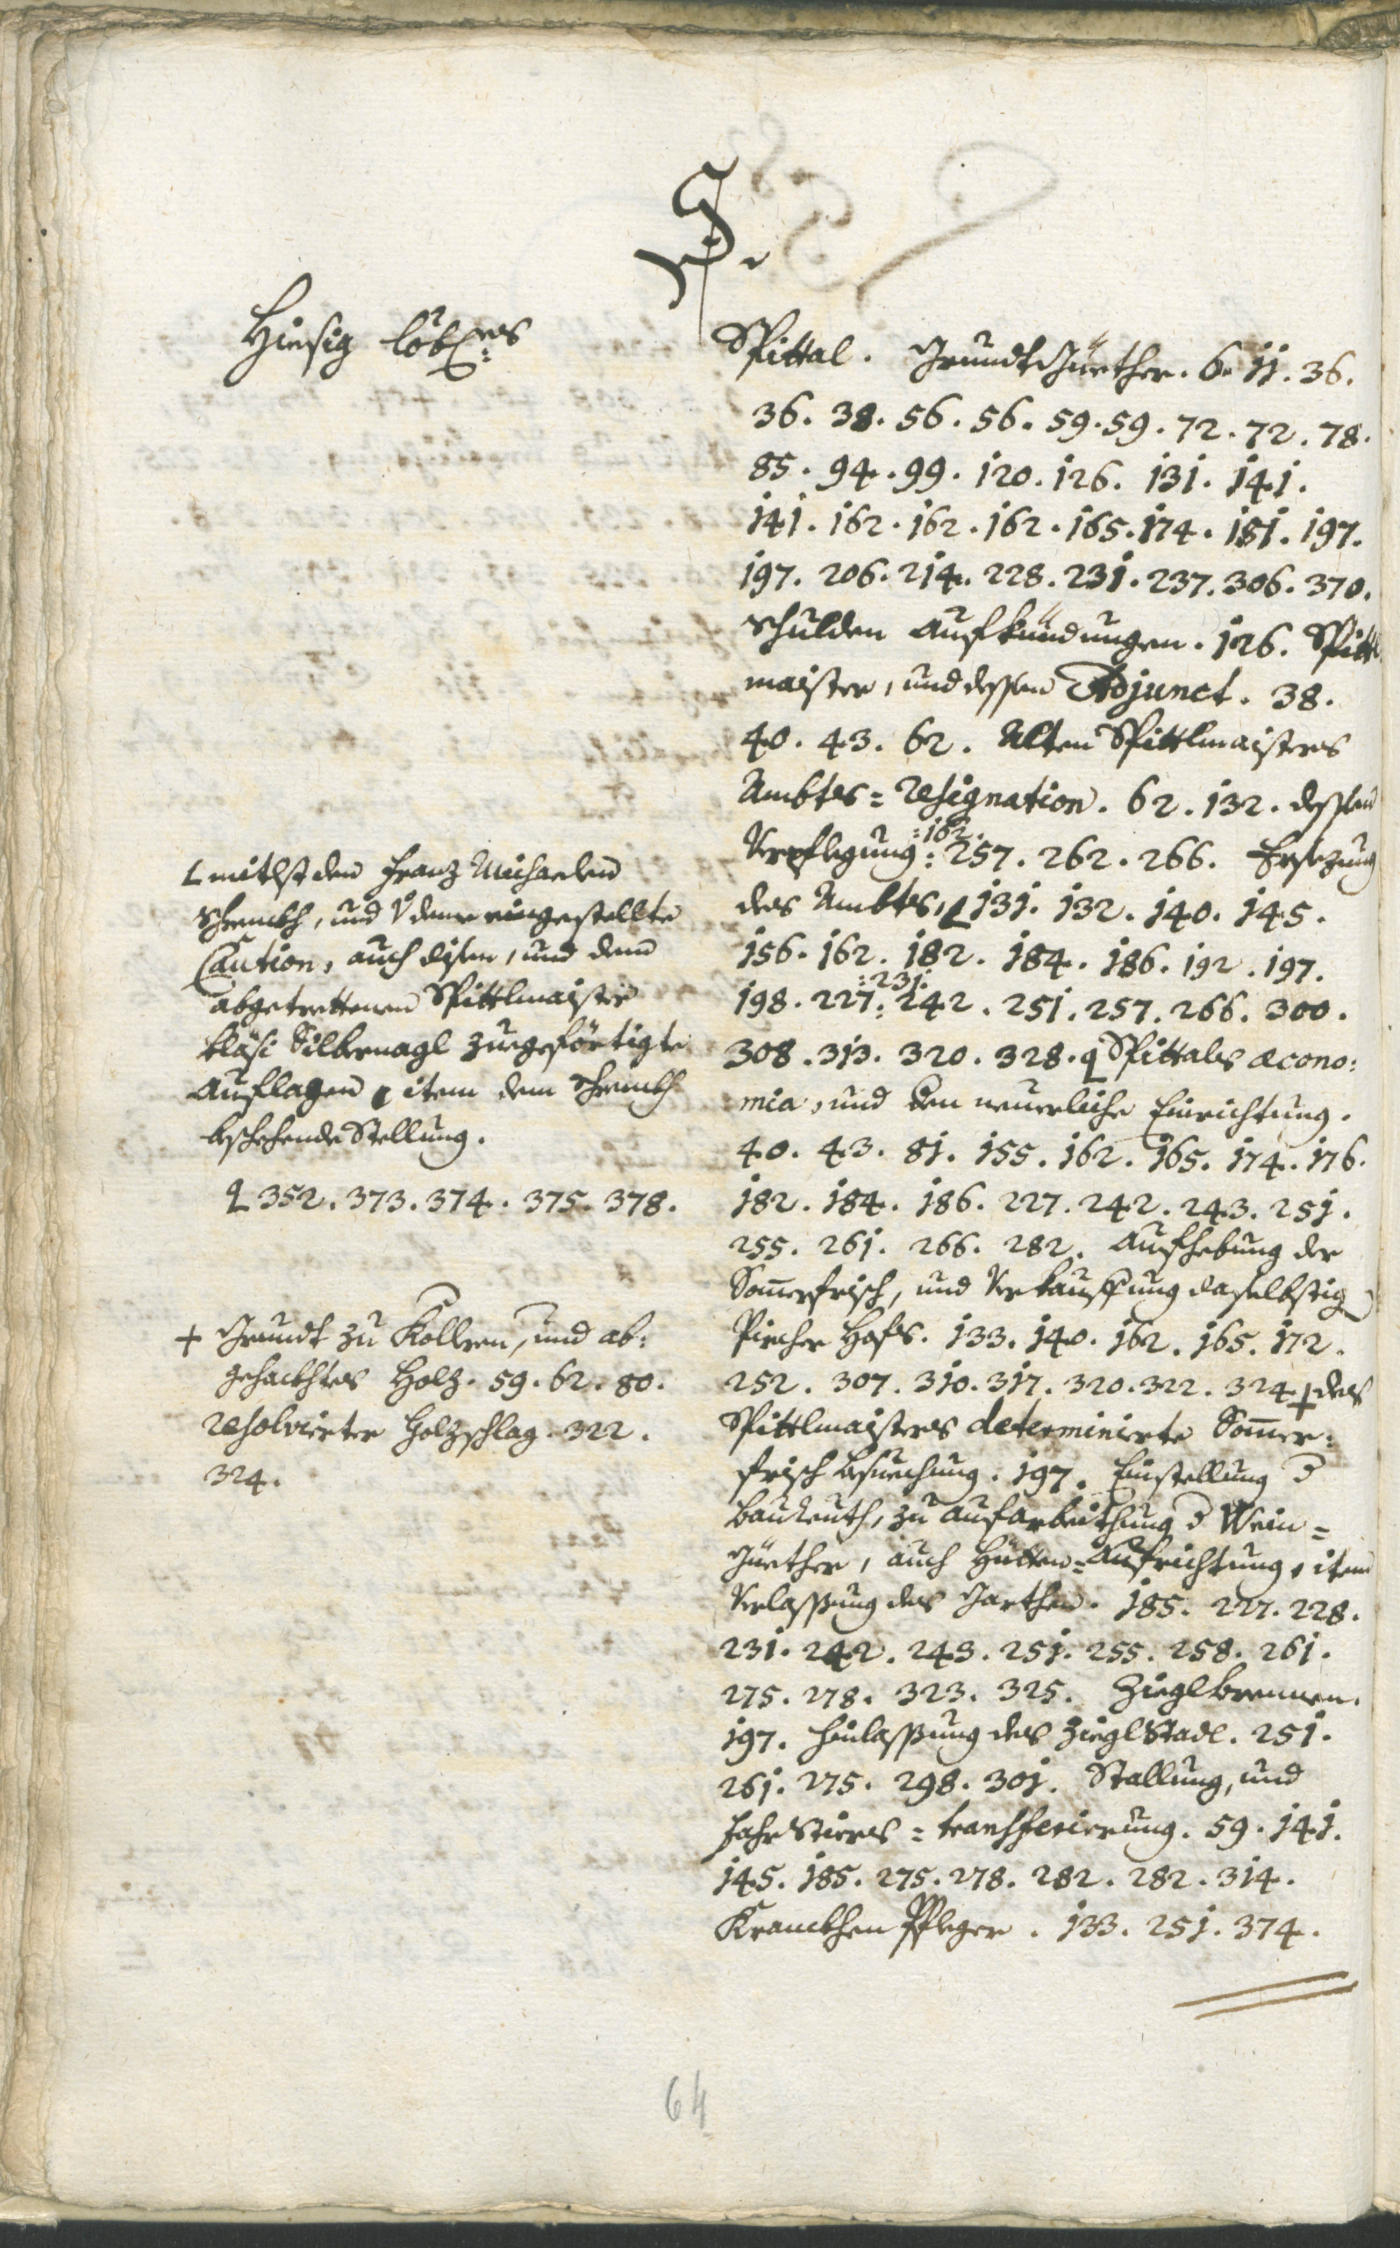 S.
Hiesig löbl:es
Spittal. Grundt Güether. 6. 11. 36.
36. 38. 56. 56. 59. 59. 72. 72. 78.
85. 94. 99. 120. 126. 131. 141.
141. 162. 162. 162. 165. 174. 181. 197.
197. 206. 214. 228. 231. 237. 306. 370.
schulden aufkündungen. 126. Spittl
maister, und dessen Adjunct. 38.
40. 43. 62. Alten Spittlmaisters
Ambtes=resignation. 62. 132. dessen
Verpflegung :162. 257. 262. 266. Ersezung
des Ambtes, L 131. 132. 140. 145.
156. 162. 182. 184. 186. 192. 197.
198. 227. :231: 242. 251. 257. 266. 300.
308. 313. 320. 328. q Spittals œcono:
mia, und den neuerliche Einrichtung.
40. 43. 81. 155. 162. 165. 174. 176.
182. 184. 186. 227. 242. 243. 251.
255. 261. 266. 282. Aufhebung der
Som̅erfrisch, und Verkauffung daselbstig
Pircher Hofs. 133. 140. 162. 165. 172.
252. 307. 310. 317. 320. 322. 324. + des
Spittlmaisters determinierte Som̅er:
frisch besuechung. 197. Einstellung d
bauleuth, zu aufarbeithung d Wein=
Güether, auch Hütten=Aufrichtung, item
Verlassung des Garthen. 185. 227. 228.
231. 242. 243. 251. 255. 258. 261.
275. 278. 323. 325. Zieglbrennen.
197. hinlassung des Ziegl Stadl. 251.
261. 275. 298. 301. Stallung, und
fahr Stiers=transferierung. 59. 141.
145. 185. 275. 278. 282. 282. 314.
Kranckhen Pfleger. 133. 251. 374.
L mitlst den Franz Michaelen
und dem eingestellte
Caution, auch disem, und dem
abgetrettenen Spittlmaister
Bläsi Silbernagl zuegeförtigte
Auflagen, item dem
beschehende Stellung.
q 352. 373. 374. 375. 378.
+ Grundt zu Kollern, und ab:
gehackhtes Holz. 59. 62. 80.
resolvierter Holzschlag. 322.
324.
64